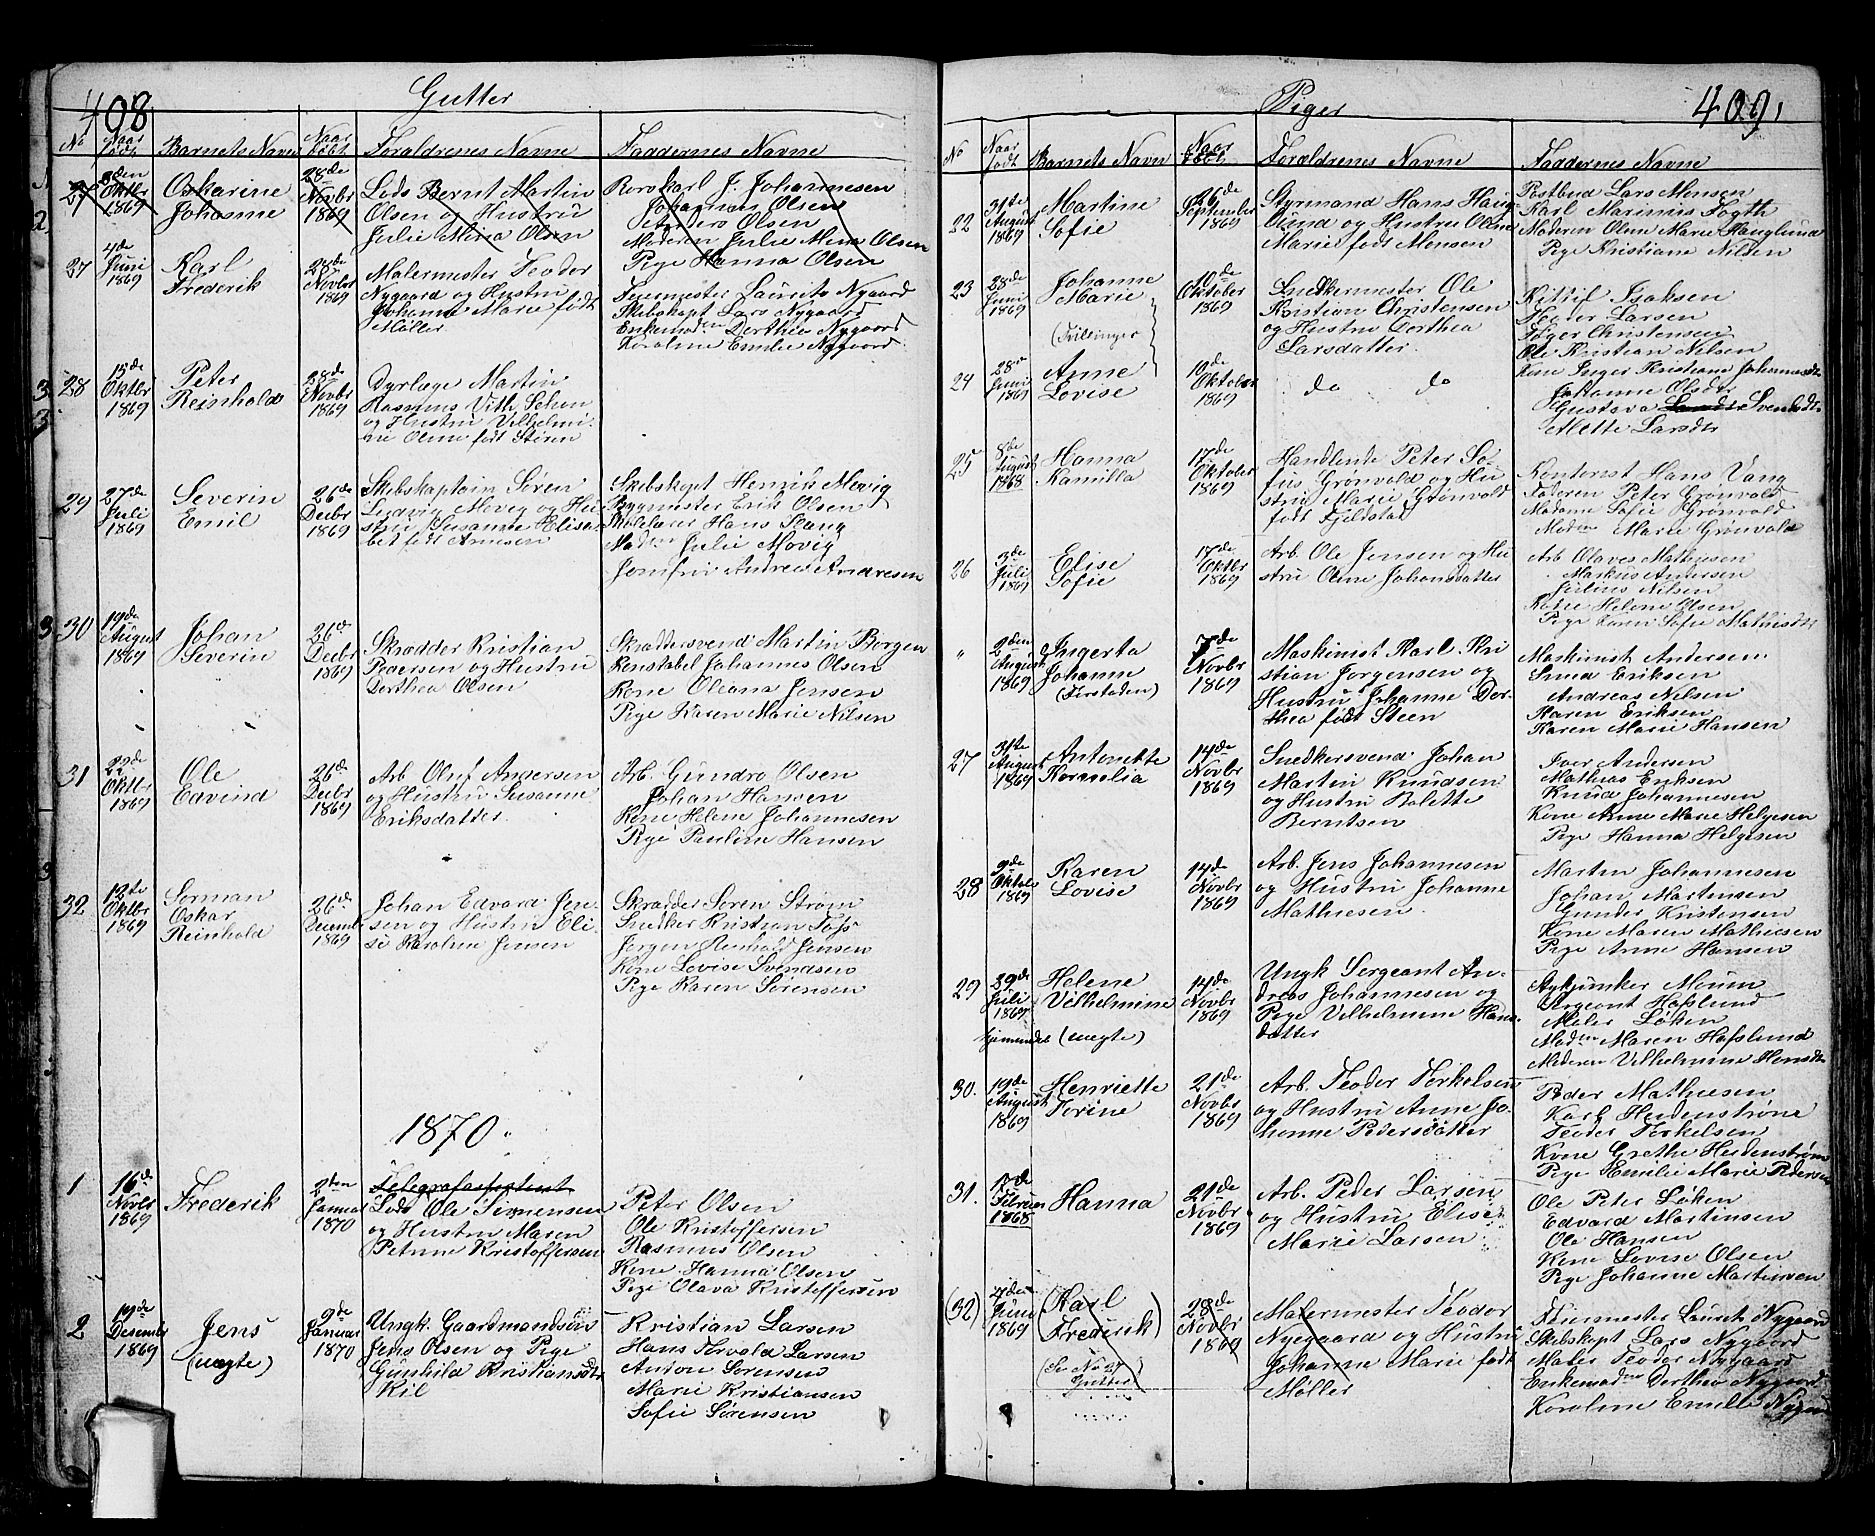 408
Gutter
No
Naar født
Barnets Navn
Naar døbt
Foraldrenes Navne
Faddernes Navne
27
8den Oktbr 1869
Oskarine
Johanne
28de Novbr 1869
Lods Bernt Martin
Olsen og Hustru
Julie Maria Olsen
Rorskarl J. Johannesen
Johannes Olsen
Petter Olsen
Moderen Julie Mem Olsen
Pige Hanna Olsen
27
4de Juni 1869
Karl
Frederik
28de Novbr 1869
Malermester Teodor
Nygaard og Hustru
Johanne Marie født
Møller
Feiermester Laurits Nygaard
Skibskapt Lars Nygaard
Enkemaden Dorthea Nygaard
Karoline Emilie Nygaard
28
15de Oktbr 1869
Peter
Reinholdt
28de Novbr 1869
Dyrlæge Martin
Rasmus Vith Schen
og Hustru Vilhelmi-
ne Olme født Steren
29
27de Juli 1869
Severin
Emil
26de Decbr 1869
Skibskaptein Søren
Ludvig Movig og Hu-
stru Susanne Elisa-
bet født Arnesen
Skibskapt Henrik Movig
Bygmester Erik Olsen
Skolelærer Hans Slang
Madam Julie Movig
Jomfru Andrea Andresen
30
19de August 1869
Johan
Severin
26de Decbr 1869
Skrædder Kristian
Pedersen og Hustru
Dorthea Olsen
Skræddersvend Martin Borgen
Konstabel Johannes Olsen
Kone Oleana Jensen
Pige Karen Marie Nilsen
31
22de Oktbr 1869
Ole
Edvind
26de Decbr 1869
Arb Oluf Andersen
og Hustru Susanne
Eriksdatter
Arb. Gundro Olsen
Johan Hansen
Kone Helene Johannesen
Pige Pauline Hansen
32
12te Oktbr 1869
Serman
Oskar
Reinhold
26de Decemb 1869
Johan Edvard Jen-
sen og Hustru Eli-
se Karoline Jensen
Skrædder Søren Strøm
Snedker Kristian Foss
Jørgen Reinhold Jensen
Kone Lovise Svendsen
Pige Karen Sørensen
1870.
1
16de Novbr 1869
Frederik
2den Januar 1870
Telegrafasistent
Lods Ole Simensen
og Hustru Maren
Petrine Kristoffersen
Peter Olsen
Ole Kristoffersen
Rasmus Olsen
Kone Hanna Olsen
Pige Olava Kristoffersen
2
19de Desembr 1869
Jens
(uægte)
9de Januar 1870
Ungk. Gaardmandsøn
Jens Olsen og Pige
Gunhild Kristiansdtr
Kil
Kristian Larsen
Hans Torvald Larsen
Anton Sørensen
Marie Kristiansen
Sofie Sørensen
409,
Piger
No
Naar født
Barnets Navn
Naar døbt
Foraldrenes Navne
Faddernes Navne
22
31te August 1869
Martine
Sofie
26de September 1869
Styrmand Hans Haug-
lund og Hustru Olme
Marie født Monsen
Postbud Lars Monsen
Karl Marinus Fogth
Moderen Olme Marie Hauglund
Pige Kristiane Nilsen
23
28de Juni 1869
Johanne
Marie
(Tvillinger)
10de Oktober 1869
Snedkermester Ole
Kristian Christensen
og Hustru Dorthea
Larsdatter
Kittil Isaksen
Teoder Larsen
Asger Christensen
Ole Kristian Nilsen
24
28de Juni 1869
Anne
Lovise
10de Oktober 1869
do do
Kone Inger Kristiane Johannesdtr
Johanne Olsdtr
Gustava Svendsdtr
Mette Larsdtr
25
8de August 1868
Hanna
Kamilla
17de Oktober 1869
Handlende Peter So-
fus Grønvold og Hu-
stru Marie Grønvold
født Fjeldstad
Kontorist Hans Vang
Faderen Peter Grønvold
Madame Sofie Grønvold
Moderen Marie Grønvold
26
3de Juli 1869
Elise
Sofie
17de Oktbr 1869
Arb. Ole Jensen og Hu-
stru Olme Johansdatter
Arb Olaves Mathisen
Markus Andersen
Julius Nilsen
Kone Helene Olsen
Pige Karen Sofie Mathisdtr
"
2den August 1869
Ingerta
Johanne
(Forstaden)
7de Novbr 1869
Maskinist Karl Kri-
stian Jørgensen og
Hustru Johanne Dor-
thea født Steen
Maskinist Andersen
Smed Eriksen
Andreas Nilsen
Karen Eriksen
Karen Marie Hansen
27
31te August 1869
Antonette
Kornelia
14de Novbr 1869
Snedkersvend Johan
Martin Knudsen
og Hustru Bolette
Berntsen
Iver Andersen
Mathias Eriksen
Knud Johannesen
Kone Anne Marie Helgesen
Pige Hanna Helgesen
28
9de Oktob 1869
Karen
Lovise
14de Novbr 1869
Arb. Jens Johannesen
og Hustru Johanne
Mathiesen
Martin Johannesen
Johan Martensen
Gunder Kristensen
Kone Maren Mathiesen
Pige Anne Hansen
29
29de Juli 1869
hjemmedøbt
Helene
Vilhelmine
(uægte)
14de Novbr 1869
Ungk Sergeant An-
dreas Johannesen og
Pige Vilhelmine Hans-
datter
Avkjunker Moum
Sergeant Hafslund
Maler Løken
Madam Maren Hafslund
Moderen Vilhelmine Hansdtr
30.
19de August 1869
Henriette
Torine
21de Novbr 1869
Arb. Teoder Torkelsen
og Hustru Anne Jo-
hanne Pedersdatter
Peder Mathiesen
Karl Heidenstrøm
Teoder Torkelsen
Kone Grethe Heidenstrøm
Pige Emilie Marie Pedersen
31.
17de Februar 1868
Hanna
21de Novbr 1869
Arb. Peder Larsen
og Hustru Elise
Marie Larsen
Ole Peter Løken
Edvard Martinsen
Ole Hansen
Kone Lovise Olsen
Pige Johanne Martinsen
(32)
4den Juni 1869
(Karl
Frederik)
(Se No 27
Gutter)
28de Novbr 1869
Malermester Teodor
Nyegaard og Hustru
Johanne Marie født
Møller
Feiermester Laurits Nygaard
Skibskapt Lars Nygaard
Maler Teodor Nygaard
Enkemaden Dorthea Nygaard
Karoline Emilie Nygaard